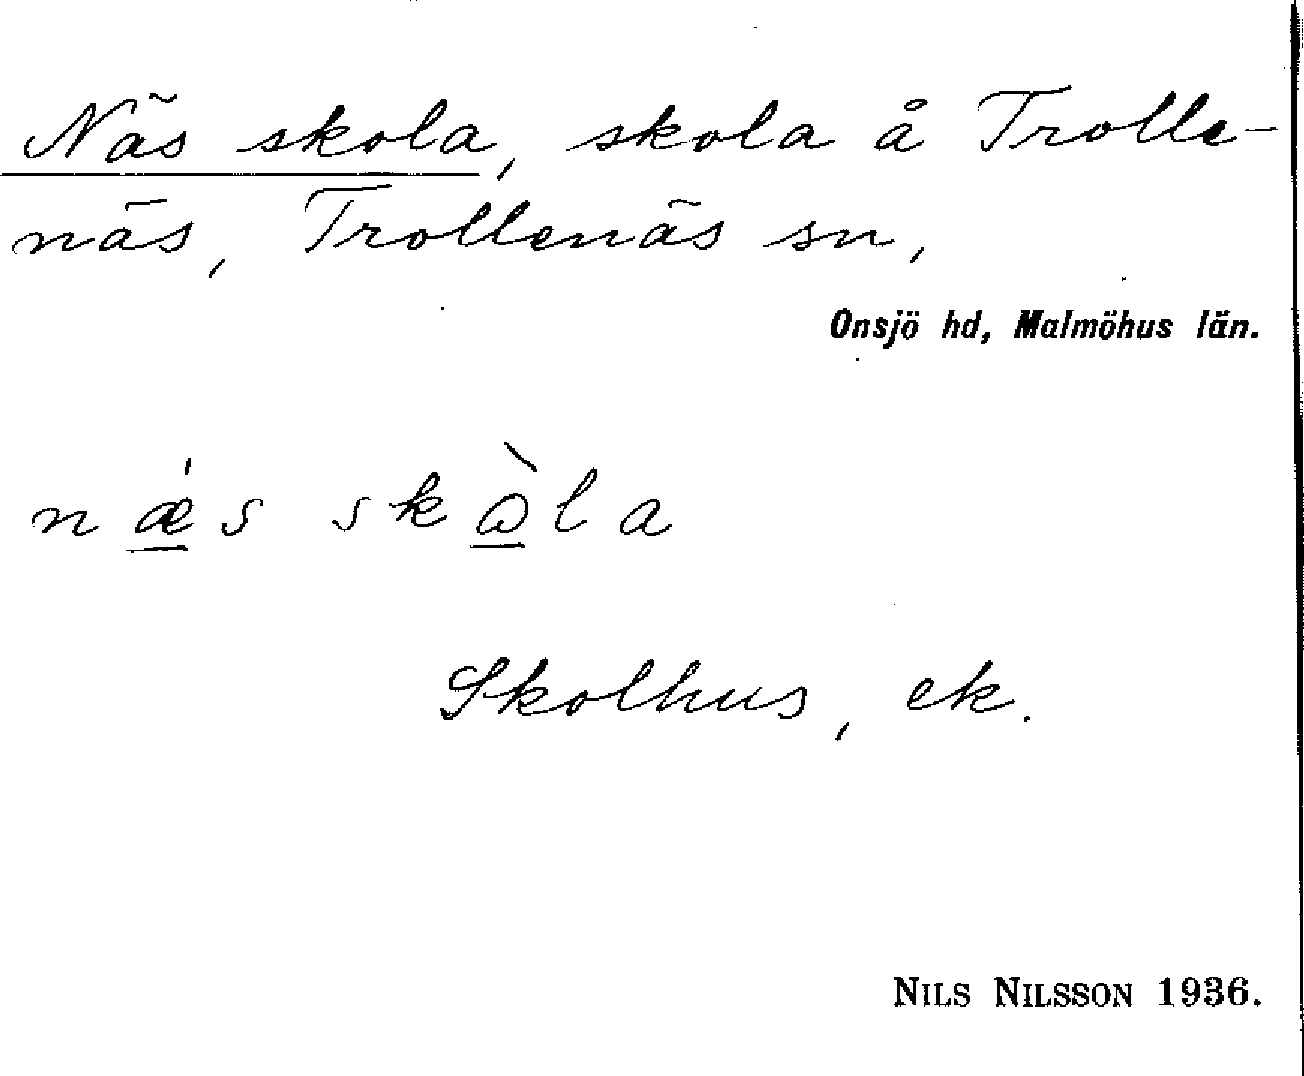 Näs skola, skola å Trolle-
näs, Trollenäs sn,
Onsjö hd, Malmöhus län.
nǽ̲s skὼ̲la
Skolhus, ek.
NILS NILSSON 1936.